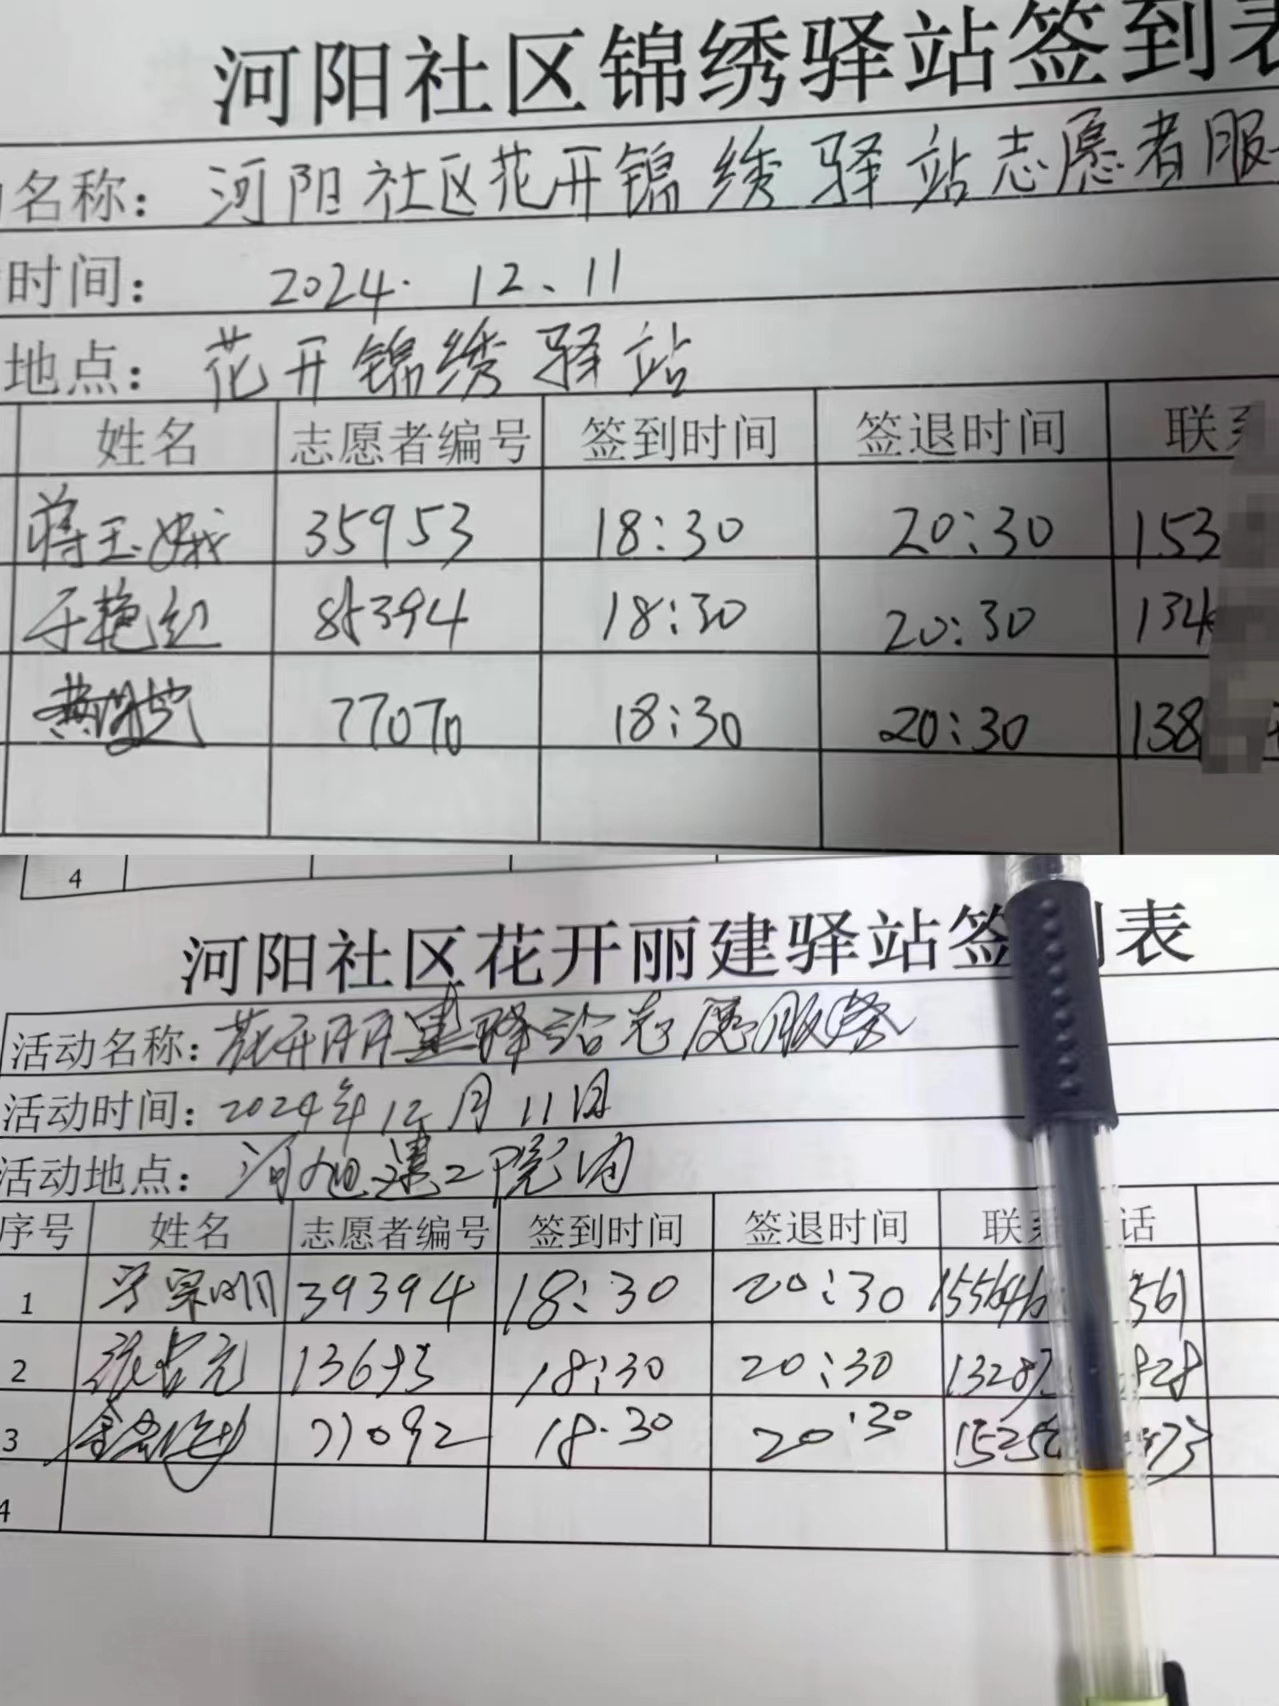 河阳社区锦绣驿站签到表
名称： 河阳社区花开锦绣驿站志愿者服
时间： 2024. 12、11
地点： 花开锦绣驿站
姓名 志愿者编号 签到时间 签退时间 联系
蒋玉娥 35953 18:30 20:30 153
于艳红 85394 18:30 20:30 134
77070 18:30 20:30 138
4
河阳社区花开丽建驿站签到表
活动名称： 花开丽建驿站志愿服务
活动时间： 2024年12月11日
活动地点： 河旭建工院内
序号 姓名 志愿者编号 签到时间 签退时间 联系 话
1 宗明 39394 18:30 20:30 561
2 张占元 13695 18:30 20:30 828
3 71092 18:30 20:30 73
4